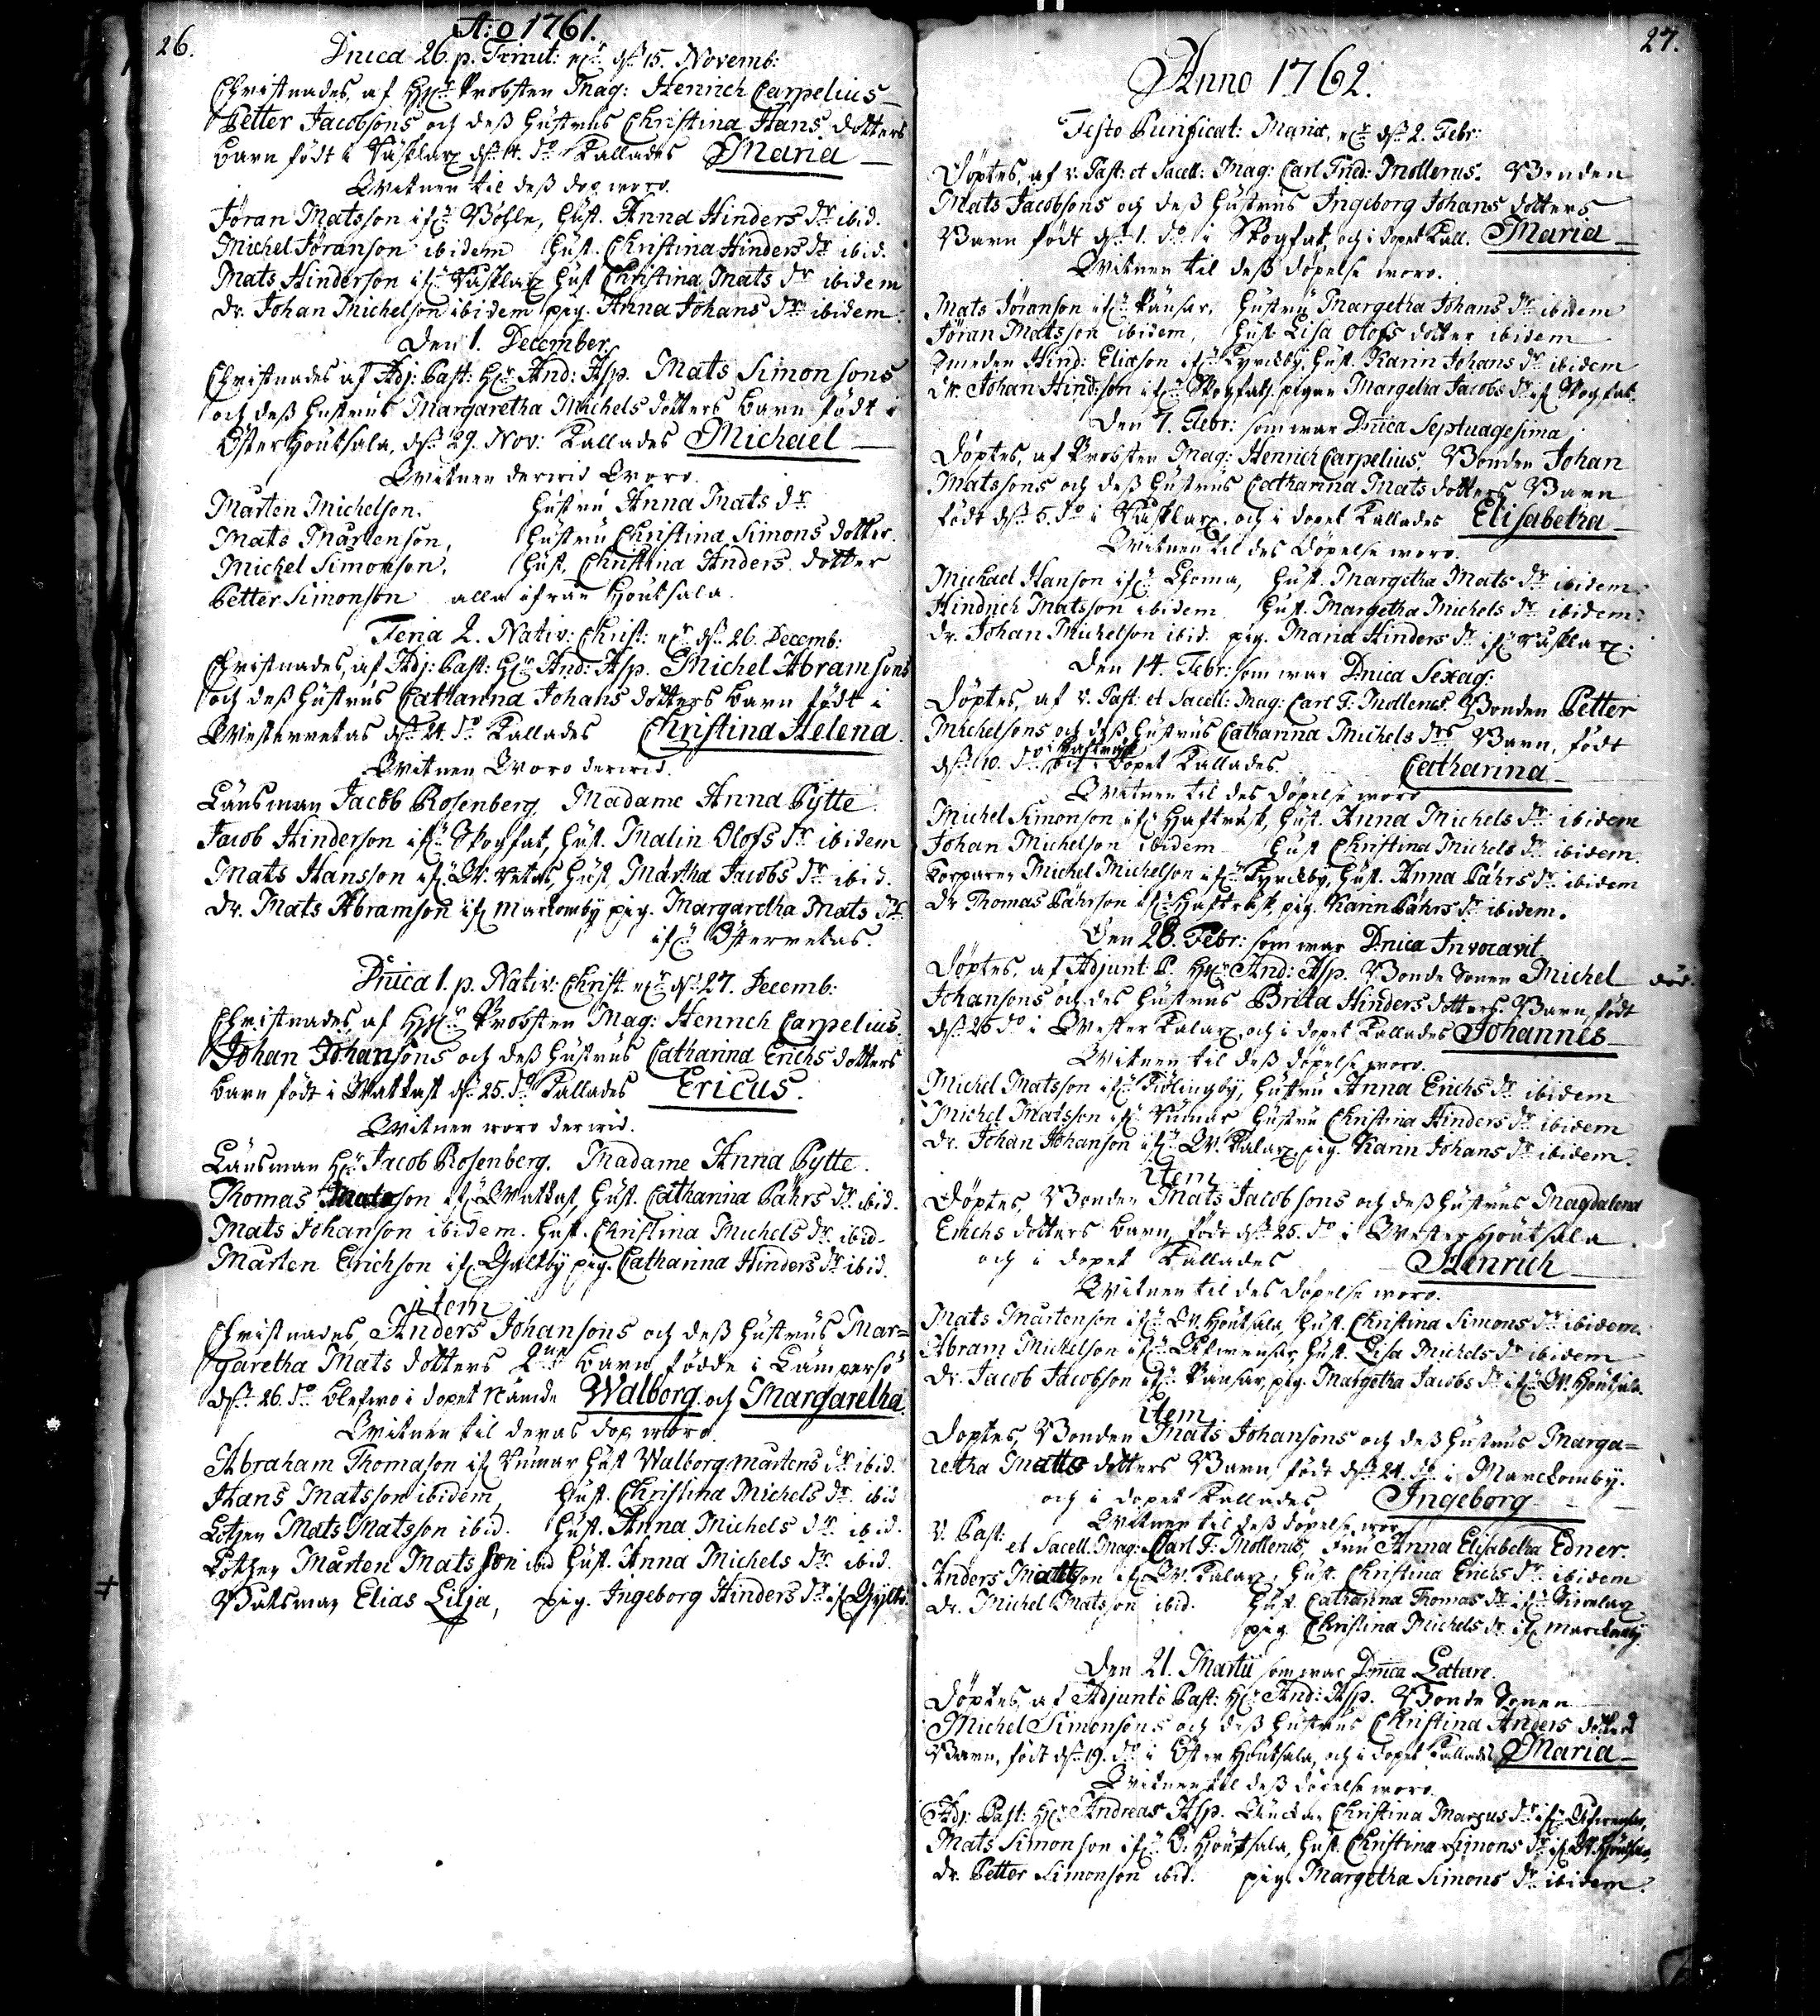 26.
A:o 1761.
Dnica 26. p. Trinit: eller d. 15. Novemb:
Christnades, af H:r Probsten Mag: Henrich Carpelius
Petter Jacobsons och dess hustrus Christina Hans dotters
barn född i d. 14. d:o kallades Maria
Witnen til dess dop woro.
Jöran Matsson ifr. Böhle, hust. Anna Hinders d:r ibid.
Michel Jöranson ibidem hust. Christina Hinders d:r ibid.
Mats Hinderson ifr. hust Christina Mats d:r ibidem
dr. Johan Michelson ibidem pig. Anna Johans d:r ibidem.
Den 1. December
Christnades af Adj: Past: H:r And: Asp. Mats Simonsons
och dess hustrus Margaretha Michels dotters barn född i
Öster Houtsala, d. 29. Nov: kallades Michael
Witnen derwid Woro.
Mårten Michelson. Hustru Anna Mats d:r
Mats Mårtenson, Hustru Christina Simons dotter.
Michel Simonson, Hust. Christina Anders dotter
Petter Simonson alla ifrån Houtsala.
Feria 2. Nativ: Christ: eller d. 26. Decemb:
Christnades, af Adj: Past: H:r And: Asp. Michel Abramsons
och dess hustrus Catharina Johans dotters barn född i
Westerretais d. 24. d:o kallades Christina Helena.
Witnen Woro derwid.
Länsman Jacob Rosenberg, Madame Anna Pytte
Jacob Hinderson ifr. Skogfat, hust. Malin Olofs d:r ibidem
Mats Hansson ifr. W. Retais, hust. Märtha Jacobs d:r ibid.
dr. Mats Abramson ifr. Markomby pig. Margaretha Mats d:r
ifr. Österretais.
Dnica 1. p. Nativ: Christ. eller d. 27. Decemb:
Christnades, af H:r Probsten Mag: Henrich Carpelius.
Johan Johansons och dess hustrus Catharina Erichs dotters
barn född i Wattkast d. 25. d:o kallades Ericus.
Witnen woro derwid.
Länsman H:r Jacob Rosenberg. Madame Anna Pytte.
Thomas Matsson ifr. Wattkast, hust. Catharina Påhrs d:r ibid.
Mats Johanson ibidem. hust. Christina Michels d:r ibid.
Mårten Erichson ifr. Galtby pig. Catharina Hinders d:r ibid.
item
Christnades, Anders Johansons och dess hustrus Mar=
garetha Mats dotters 2:ne barn, födde i Lampersö
d. 26. d:o blefwo i dopet nämde Walborg och Margaretha.
Witnen til deras dop woro.
Abraham Thomason ifr. Rumar hust Walborg Mårtens d:r ibid.
Hans Matsson ibidem, hust. Christina Michels d:r ibid
Lotsen Mats Matsson ibid. hust. Anna Michels d:r ibid.
Lotsen Mårten Matsson ibid hust. Anna Michels d:r ibid.
Båtsman Elias Lilja, pig. Ingeborg Hinders d:r ifr.
27.
Anno 1762.
Festo Purificat: Mariæ, eller d. 2. Febr:
Döptes, af v. Past: et Sacell: Mag: Carl Frid: Mollerus. Bonden
Mats Jacobsons och dess hustrus Ingeborg Johans dotters
Barn född d. 1. d:o i Skogfat, och i dopet kall. Maria
Witnen til dess döpelse woro.
Mats Jöranson ifr. Pänsar, hustru Margetha Johans d:r ibidem
Jöran Matsson ibidem, hust Lisa Olofs dotter ibidem
Hind: Eliason ifr. Kyrckby, hust. Karin Johans d:r ibidem
dr. Johan Hindson ifr. Skogfat, pigan Margetha Jacobs d:r ifr. Skogfat.
Den 7. Febr: som war Dnica Septuagesima
Döptes, af Probsten Mag: Henrich Carpelius, Bonden Johan
Matssons och dess hustrus Catharina Mats dotters Barn
född d. 5. d:o i och i dopet kallades Elisabetha
Witnen til des döpelse woro.
Michael Hanson ifr. Lhoma, hust. Margetha Mats d:r ibidem
Hindrich Matsson ibidem hust. Margetha Michels d:r ibidem.
dr. Johan Michelson ibid. pig. Maria Hinders d:r ifr.
Den 14. Febr: som war Dnica Sexag:
Döptes, af v. Past: et Sacell: Mag: Carl F: Mollerus. Bonden Petter
Michelsons och dess hustrus Catharina Michels d:rs Barn, född
d. 10. d:o i Haftträsk och i dopet kallades. Catharina
Witnen til des döpelse woro
Michel Simonson ifr. Haftträsk, hust. Anna Michels d:r ibidem
Johan Michelson ibidem hust Christina Michels d:r ibidem.
Korparen Michel Michelson ifr. Kyrckby, hust. Anna Påhrs d:r ibidem
dr Thomas Påhrson ifr. Haftträsk, pig. Karin Påhrs d:r ibidem.
Den 28. Febr: som war Dnica Invocavit
Döptes, af Adjunt: P. H:r And: Asp. Bonde Sonen Michel död.
Johansons och des hustrus Brita Hinders dotters Barn, född
d. 26 d:o i Wester Kalax, och i dopet kallades Johannes
Witnen til dess döpelse woro.
Michel Matsson ifr. hustru Anna Erichs d:r ibidem
Michel Matsson ifr. Rumar hustru Christina Hinders d:r ibidem
dr. Johan Johanson ifr. W. Kalax, pig. Karin Johans d:r ibidem.
item
Döptes, Bonden Mats Jacobsons och dess hustrus Magdalena
Erichs dotters barn, född d. 25. d:o i Wester Houtsala
och i dopet kallades Henrich
Witnen til des döpelse woro.
Mats Mårtenson ifr. W. Houtsala, hust. Christina Simons d:r ibidem.
Abram Michelson ifr. hust. Lisa Michels d:r ibidem
dr. Jacob Jacobson ifr. Pänsar, pig. Margetha Jacobs d:r ifr. W. Houtsala.
item
Döptes, Bonden Mats Johansons och dess hustrus Marga=
retha Matts dotters Barn, född d. 24. d:o i Marckomby.
och i dopet kallades, Ingeborg
Witnen til dess döpelse woro
V. Past: et Sacell. Mag: Carl F: Mollerus, Fru Anna Elisabetha Edner.
Anders Mattson ifr. W. Kalax, hust. Christina Erichs d:r ibidem
dr. Michel Matsson ibid. hust. Catharina Thomas d:r ifr.
pig. Christina Michels d:r ifr. Marckomby
Den 21. Martii som war Dnica Lætare.
Döptes, af Adjuncto Past: H:r And: Asp. Bonde Sonen
Michel Simonsons och dess hustrus Christina Anders dotters
Barn, född d. 19. d:o i Öster Houtsala, och i dopet kallades Maria
Witnen til dess döpelse woro.
Adj: Past: H:r Andreas Asp. Christina Margus d:r ifr.
Mats Simonson ifr. Ö. Houtsala, hust. Christina Simons d:r ifr. W. Houtsala,
dr. Petter Simonson ibid. pig. Margetha Simons d:r ibidem.